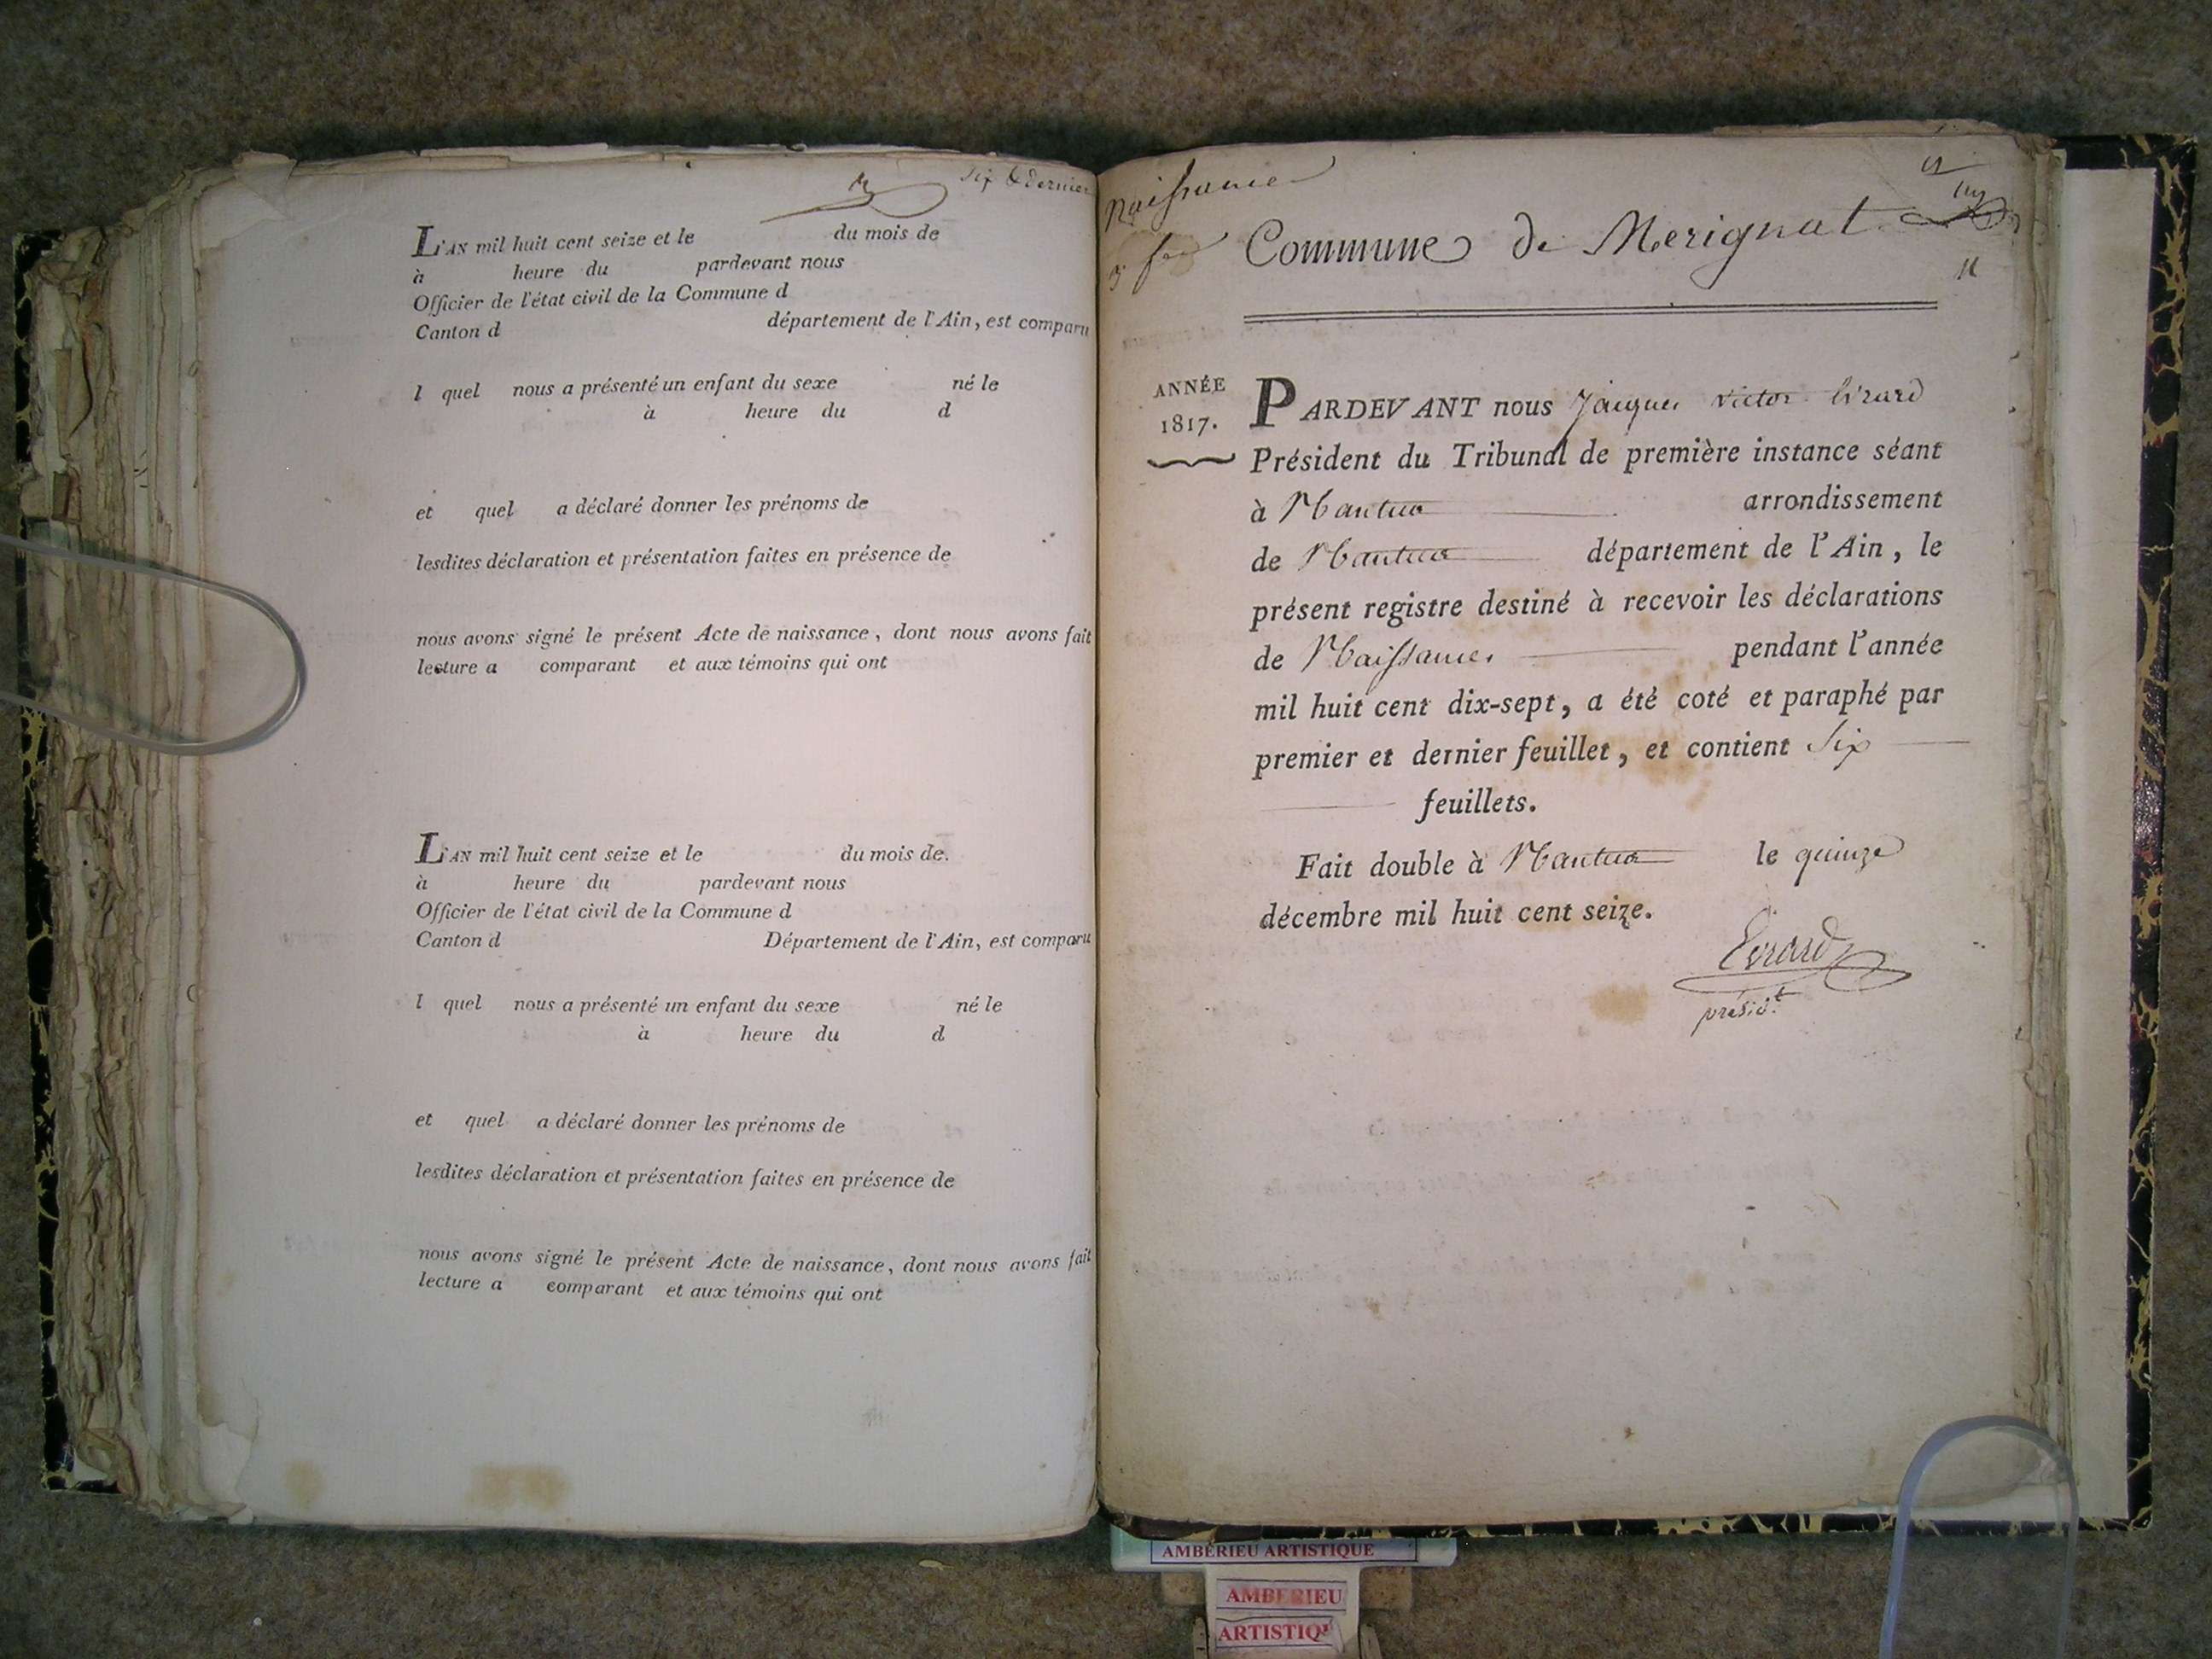 Six & dernier
L'AN mil huit cent seize et le du mois de
à heure du pardevant nous
Officier de l'état civil de la Commune d
Canton d département de l'Ain, est comparu
l quel nous a présenté un enfant du sexe né le
à heure du d
et quel a déclaré donner les prénoms de
lesdites déclaration et présentation faites en présence de
nous avons signé le présent Acte de naissance, dont nous avons fait
lecture a comparant et aux témoins qui ont
L'AN mil huit cent seize et le du mois de.
à heure du pardevant nous
Officier de l'état civil de la Commune d
Canton d Département de l'Ain, est comparu
l quel nous a présenté un enfant du sexe né le
à heure du d
et quel a déclaré donner les prénoms de
lesdites déclaration et présentation faites en présence de
nous avons signé le présent Acte de naissance, dont nous avons fait
lecture a comparant et aux témoins qui ont
Naissance
Commune de Merignat
ANNÉE
1817.
PARDEVANT nous Jacques Victor Evrard
Président du Tribunal de première instance séant
à Nantua arrondissement
de Nantua département de l'Ain, le
présent registre destiné à recevoir les déclarations
de Naissances pendant l'année
mil huit cent dix-sept, a été coté et paraphé par
premier et dernier feuillet, et contient Six
feuillets.
Fait double à Nantua le quinze
décembre mil huit cent seize.
Evrard
présidt
AMBÉRIEU ARTISTIQUE
AMBERIEU
ARTISTIQ